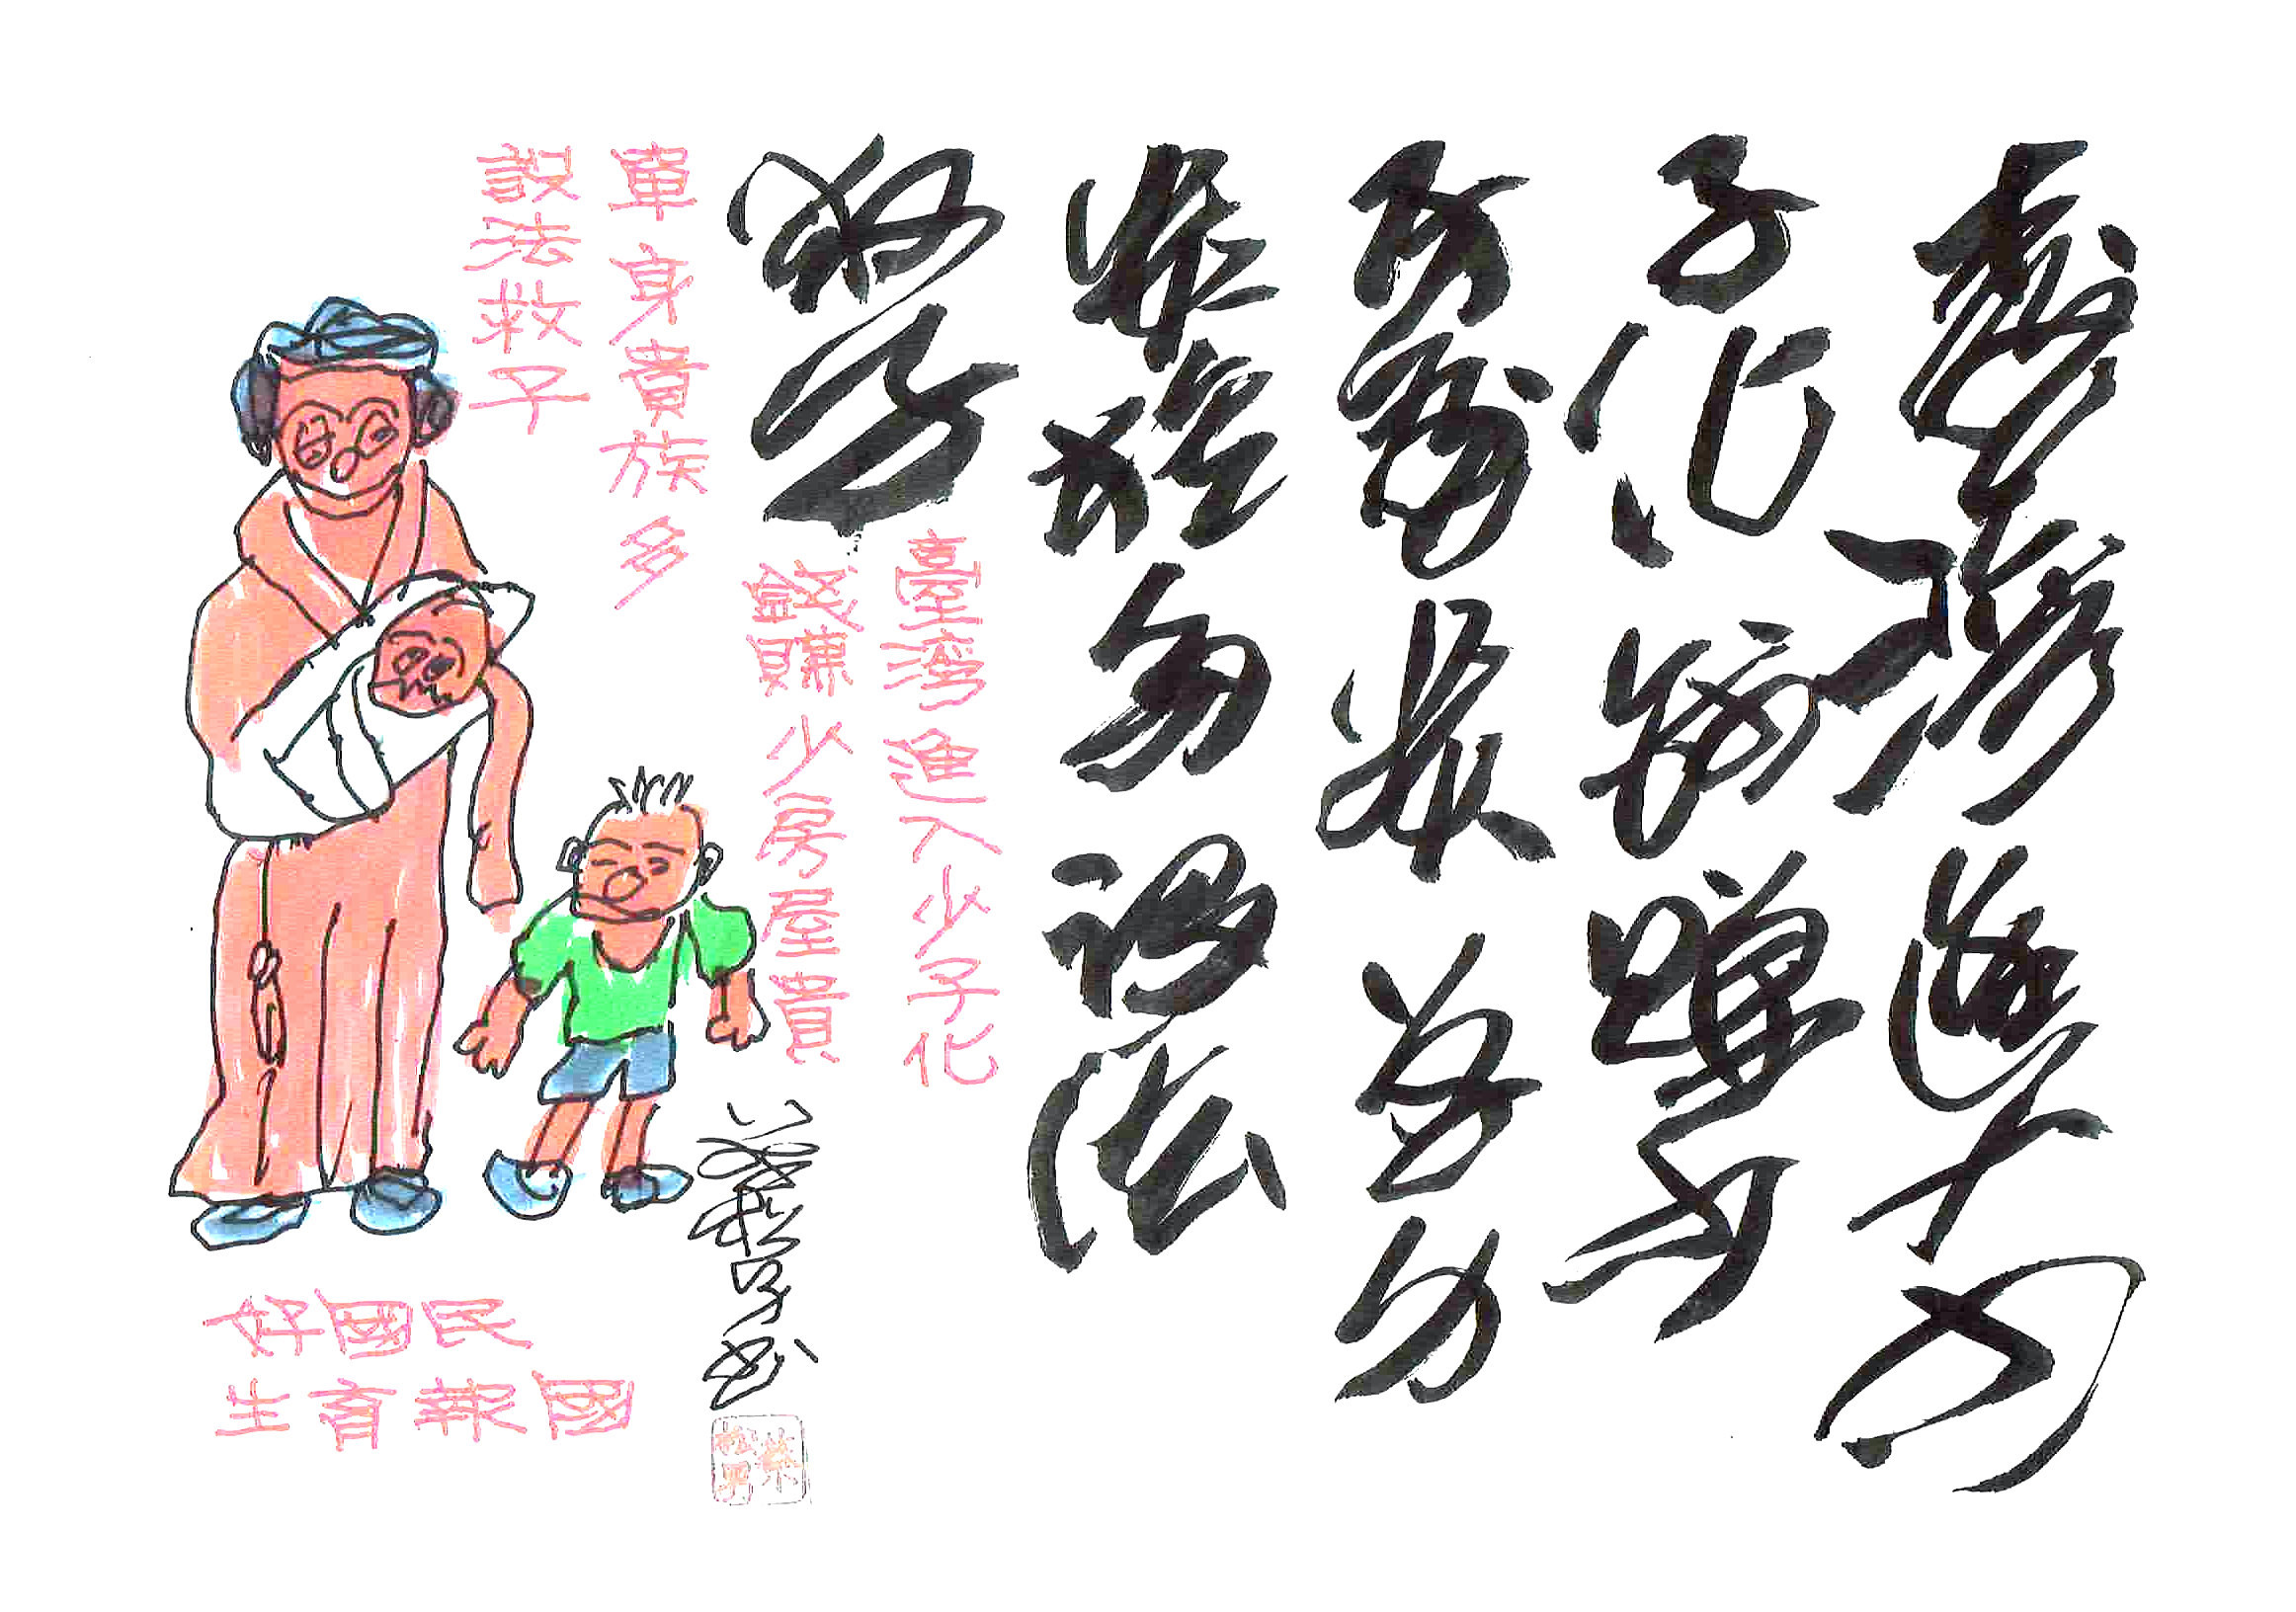 臺灣進入少
子化錢賺少
房屋貴單身
貴族多設法
救子
臺灣進入少子化
錢賺少房屋貴
單身貴族多
設法救子
蔡松男
好國民
生育報國